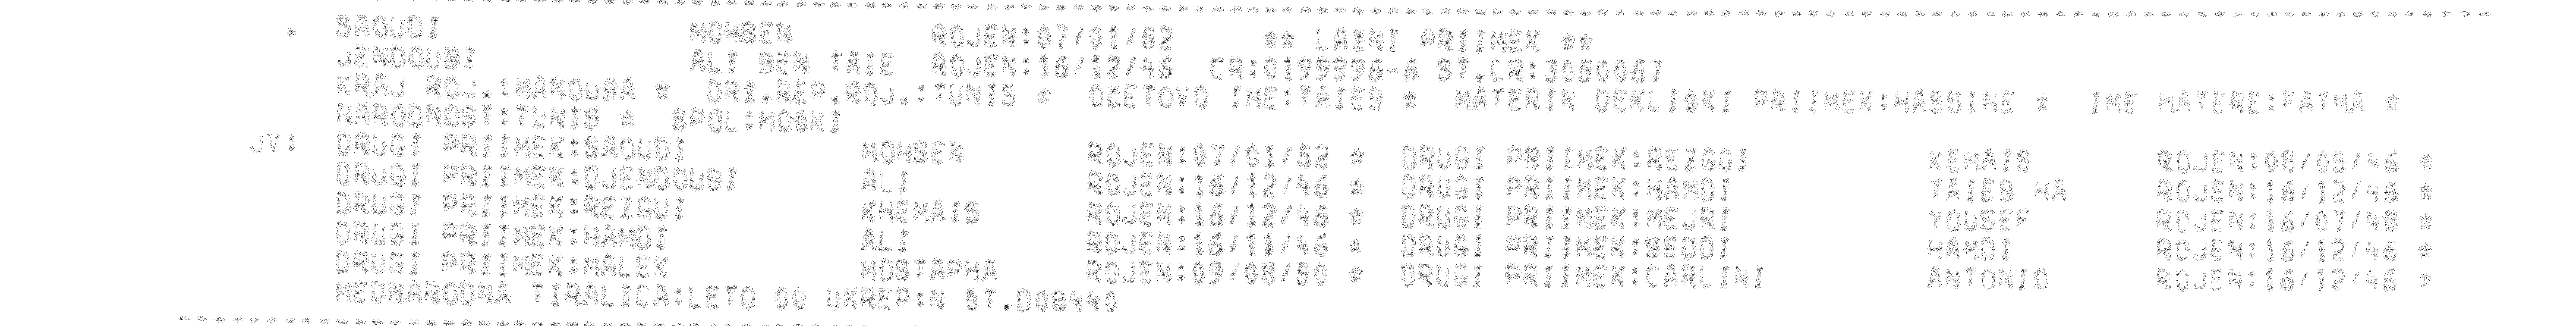 * SAOUDI MOHSEN ROJEN:07/01/52 ** LAZNI PRIIMEK **
JENDOUBI ALI BEN TAIE ROJEN:16/12/46 CR:0199396-6 ST.CR:3060067
KRAJ ROJ.:MANOUBA * DRZ.REP.ROJ.:TUNIS * OCETOVO IME:TAIEB * MATERIN DEKLISKI PRIIMEK:HASSINE * IME MATERE:FATMA *
NARODNOST:TUNIS * SPOL:MOSKI
JV: DRUGI PRIIMEK:SAOUDI MOHSEN ROJEN:07/01/52 * DRUGI PRIIMEK:REZGOI KEMAIS ROJEN:08/08/46 *
DRUGI PRIIMEK:DJENDOUBI ALI ROJEN:16/12/46 * DRUGI PRIIMEK:HAMDI TAIEB MA ROJEN:16/12/46 *
DRUGI PRIIMEK:REIGUI KHEMAIS ROJEN:16/12/46 * DRUGI PRIIMEK:MEJRI YOUSEF ROJEN:16/07/48 *
DRUGI PRIIMEK:HAMDI ALI ROJEN:16/11/46 * DRUGI PRIIMEK:BEDOI HAMDI ROJEN:16/12/46 *
DRUGI PRIIMEK:MALEK MOSTAPHA ROJEN:09/08/50 * DRUGI PRIIMEK:CARLINI ANTONIO ROJEN:16/12/46 *
MEDNARODNA TIRALICA:LETO 00 UKREP:N ST.D08440